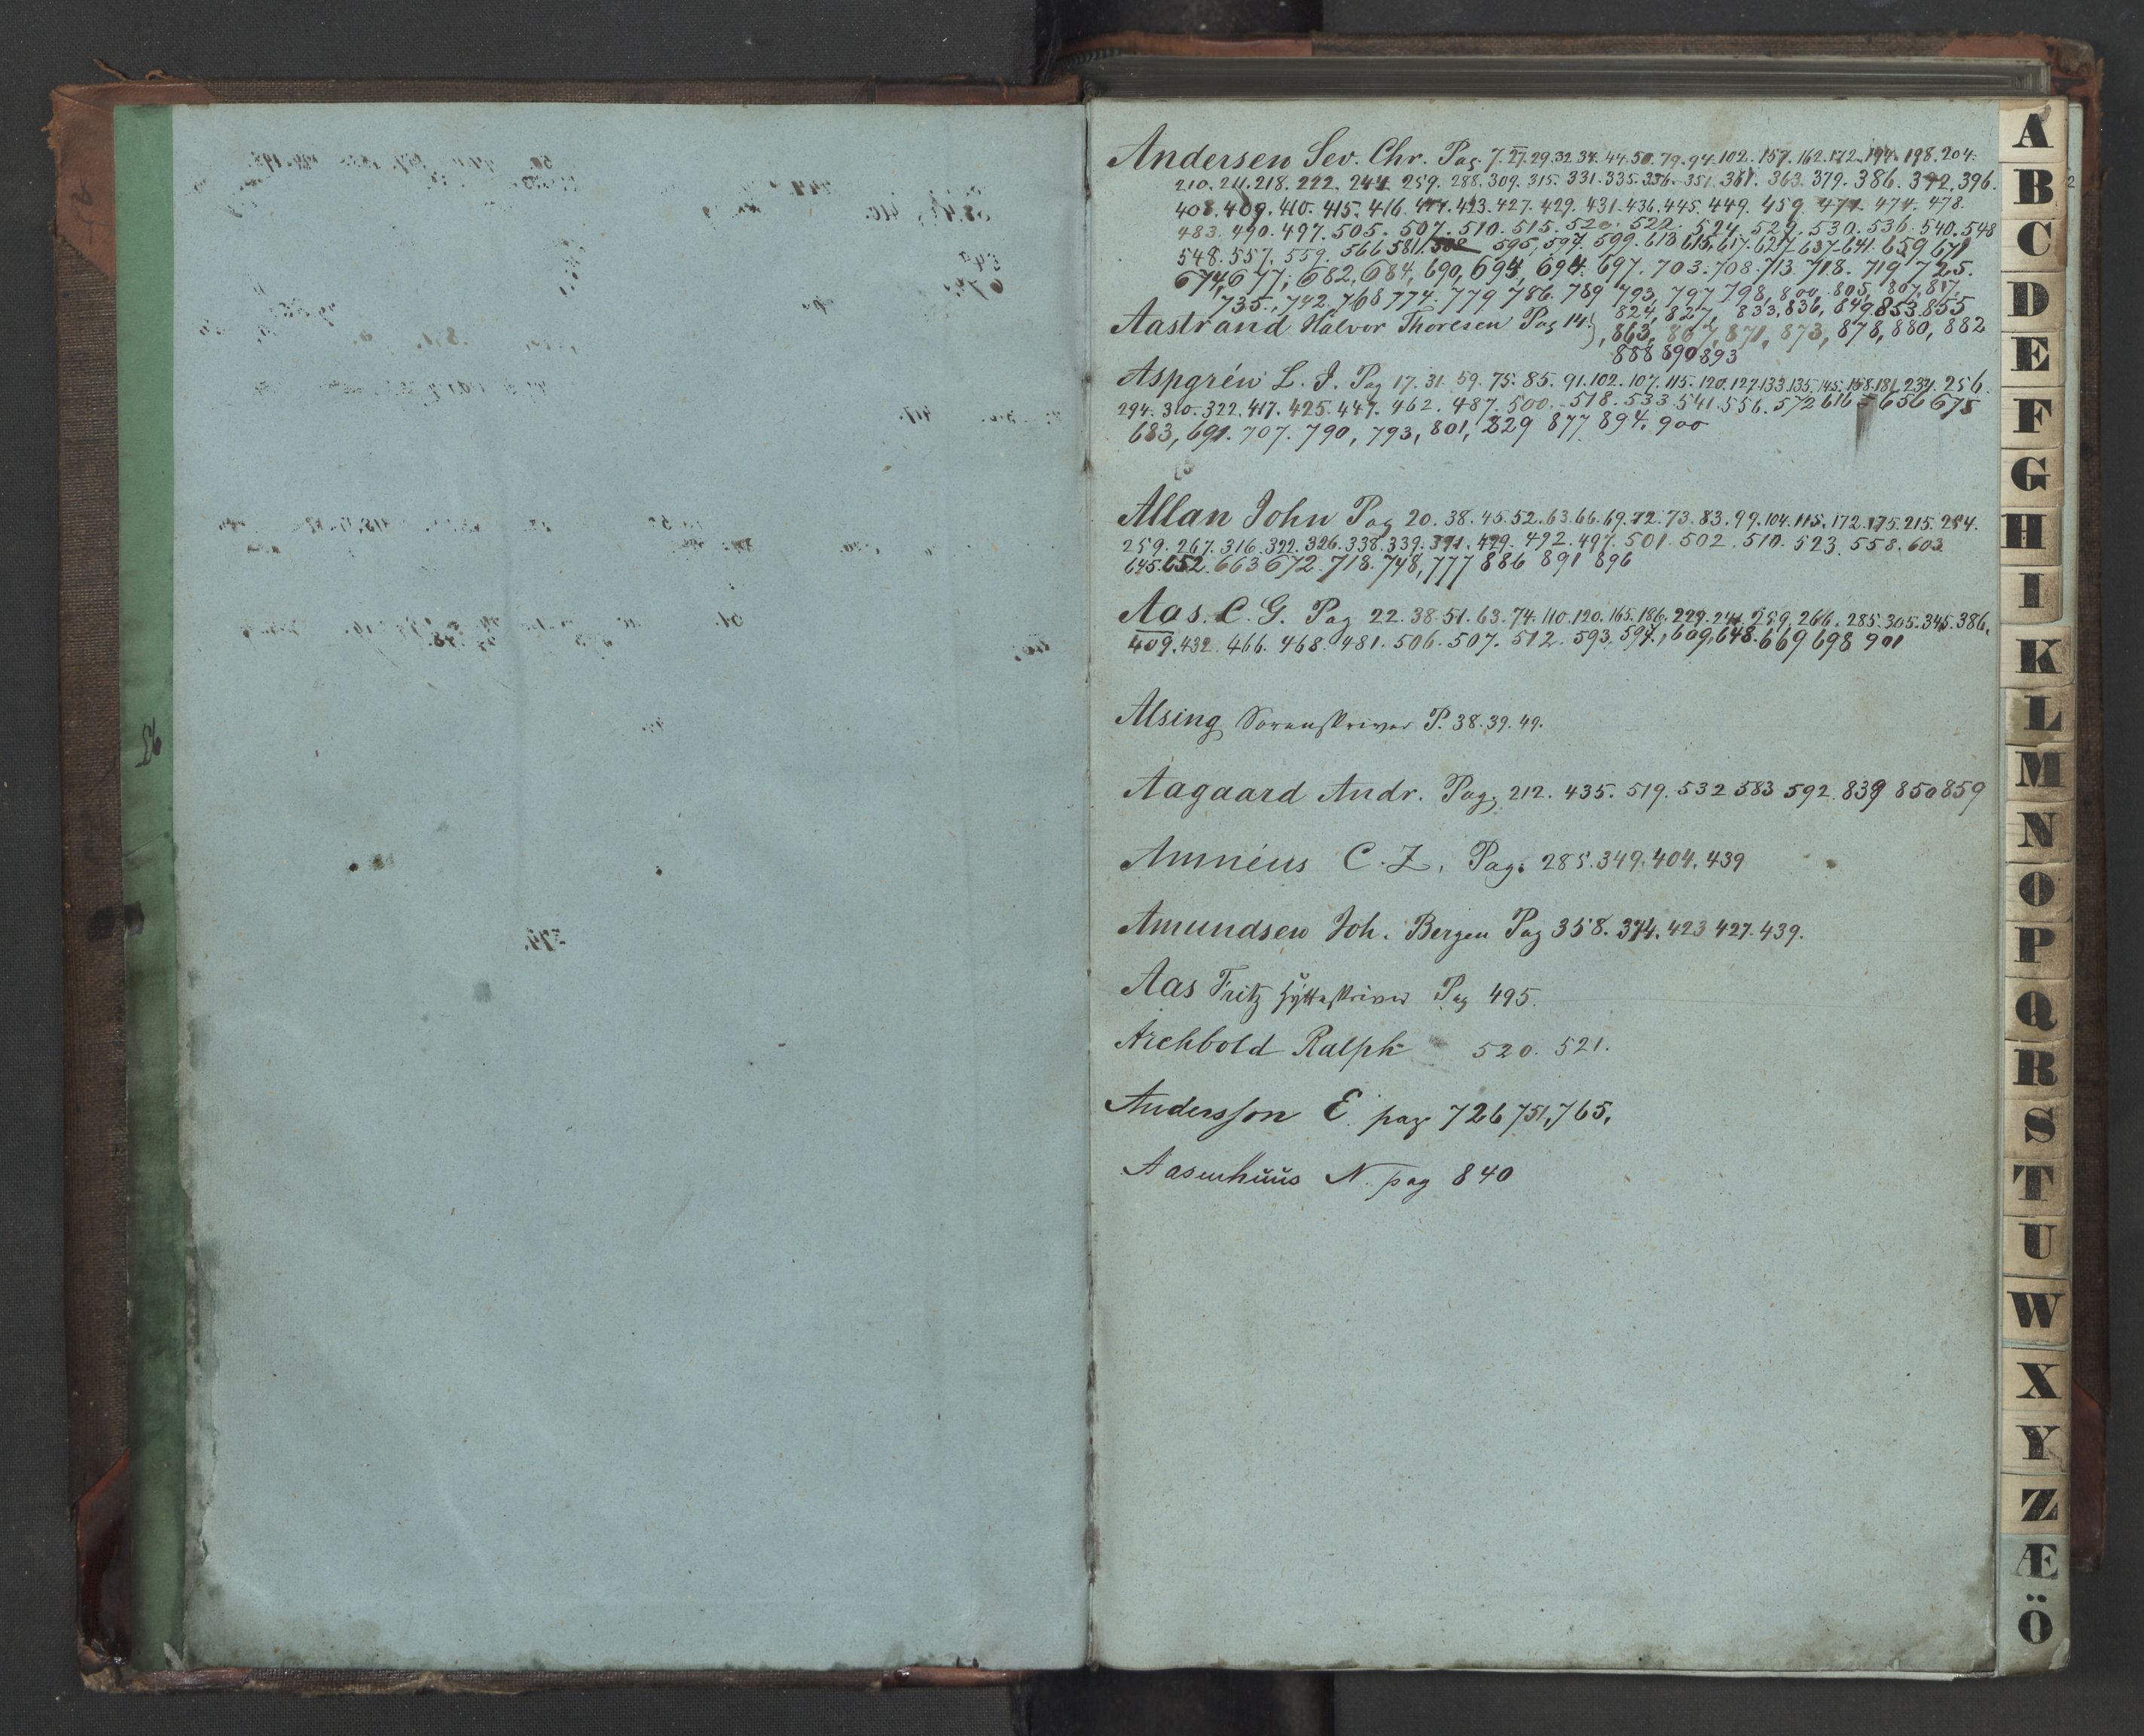 Andersen Sev. Chr. Pag. 7. 27. 29. 32. 34. 44. 50. 79. 94. 102. 157. 162. 172. 194. 198. 204.
210. 211. 218. 222. 244. 259. 288. 309. 315. 331. 335. 336. 351. 361. 363. 379. 386. 392. 396.
408. 409. 410. 415. 416. 423. 427. 429. 431. 436. 445. 449. 459. 471. 474. 478.
483. 490. 497. 505. 507. 510. 515. 520. 522. 524. 529. 530. 536. 540. 548
548. 557. 559. 566 581. 595, 597. 599. 613 615. 617. 627. 637. 641. 659 671
674, 677, 682, 684, 690, 694, 697. 703. 708. 713 718. 719 725.
735., 742. 768 774. 779 786. 789 793, 797 798, 800. 805, 807, 817,
824, 827, 833, 836, 849 853 855
Aastrand Halvor Thoresen Pag 14.
863, 867, 871, 873, 878, 880, 882
888 890 893
Aspgrén L. J. Pag 17. 31. 59. 75. 85. 91. 102. 107. 115. 120. 127. 133. 135. 145. 158. 181. 234. 256.
294. 310. 322. 417. 425. 447. 462. 487. 500. 518. 533 541. 556. 572 616 656 675
683, 691. 707. 790, 793, 801, 829 877 894. 900
Allan John Pag 20. 38. 45. 52. 63. 66. 69. 72. 73. 83. 99. 104. 115. 172. 175. 215. 254.
259. 267. 316. 322. 326. 338. 339. 391. 429. 492. 497. 501. 502. 510. 523. 558. 603
645. 652. 663 672. 718. 748, 777 886 891 896
Aas. C. G. Pag 22. 38. 51. 63. 74. 110. 120. 165. 186. 229. 244. 259. 266. 285. 305. 345. 386.
409. 432. 466. 468. 481. 506. 507. 512. 593. 597., 609, 648. 669 698 901
Alsing Sorenskriver P. 38. 39. 49.
Aagaard Andr. Pag. 212. 435. 519. 532 583 592. 839 850 859
Amnéus C. Z. Pag. 285. 349. 404. 439
Amundsen Joh. Bergen Pag 358. 374. 423 427. 439.
Aas Fritz Hytteskriver Pag 495.
Archbold Ralph 520. 521.
Andersson E. pag 726 751, 765,
Aasenhuus N. pag 840
A
B
C
D
E
F
G
H
I
K
L
M
N
O
P
Q
R
S
T
U
W
X
Y
Z
Æ
Ö